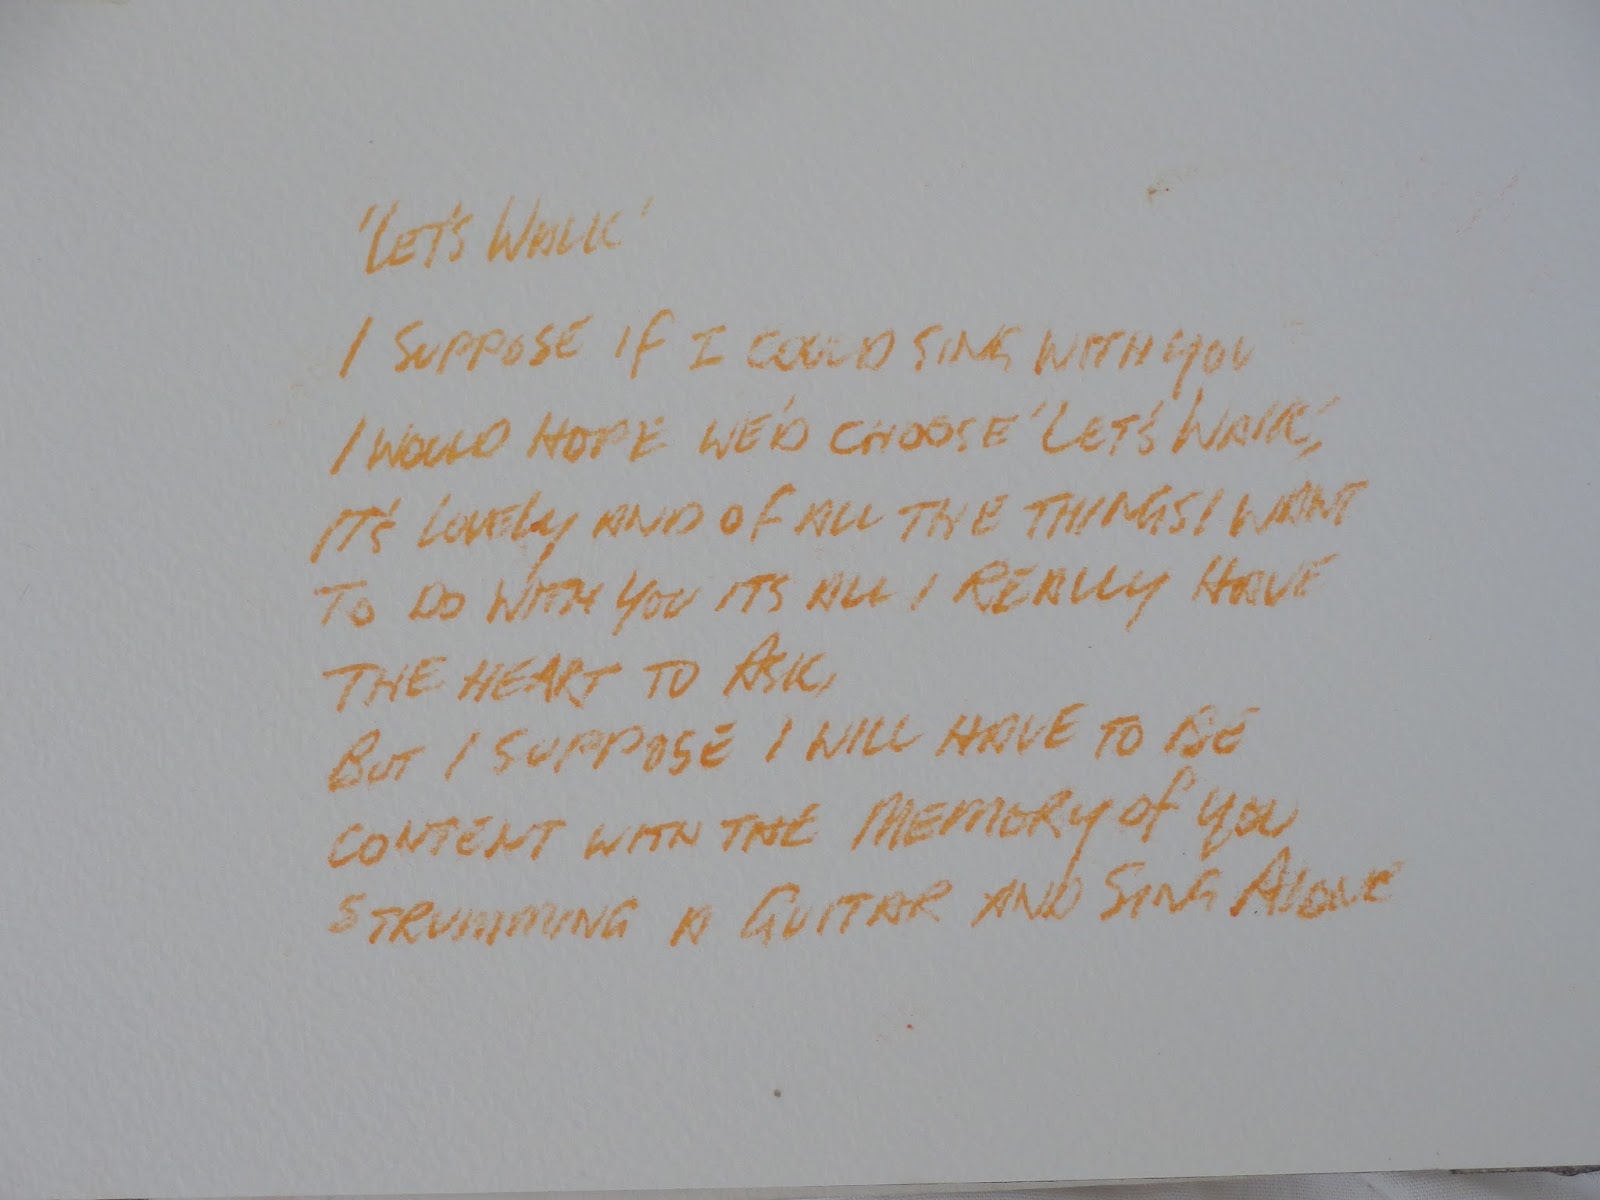 'LET'S WALK'
I SUPPOSE IF I COULD SING WITH YOU
I WOULD HOPE WE'D CHOOSE 'LET'S WALK',
IT'S LOVELY AND OF ALL THE THINGS I WANT
TO DO WITH YOU ITS ALL I REALLY HAVE
THE HEART TO ASK,
BUT I SUPPOSE I WILL HAVE TO BE
CONTENT WITH THE MEMORY OF YOU
STRUMMING A GUITAR AND SING ALONE